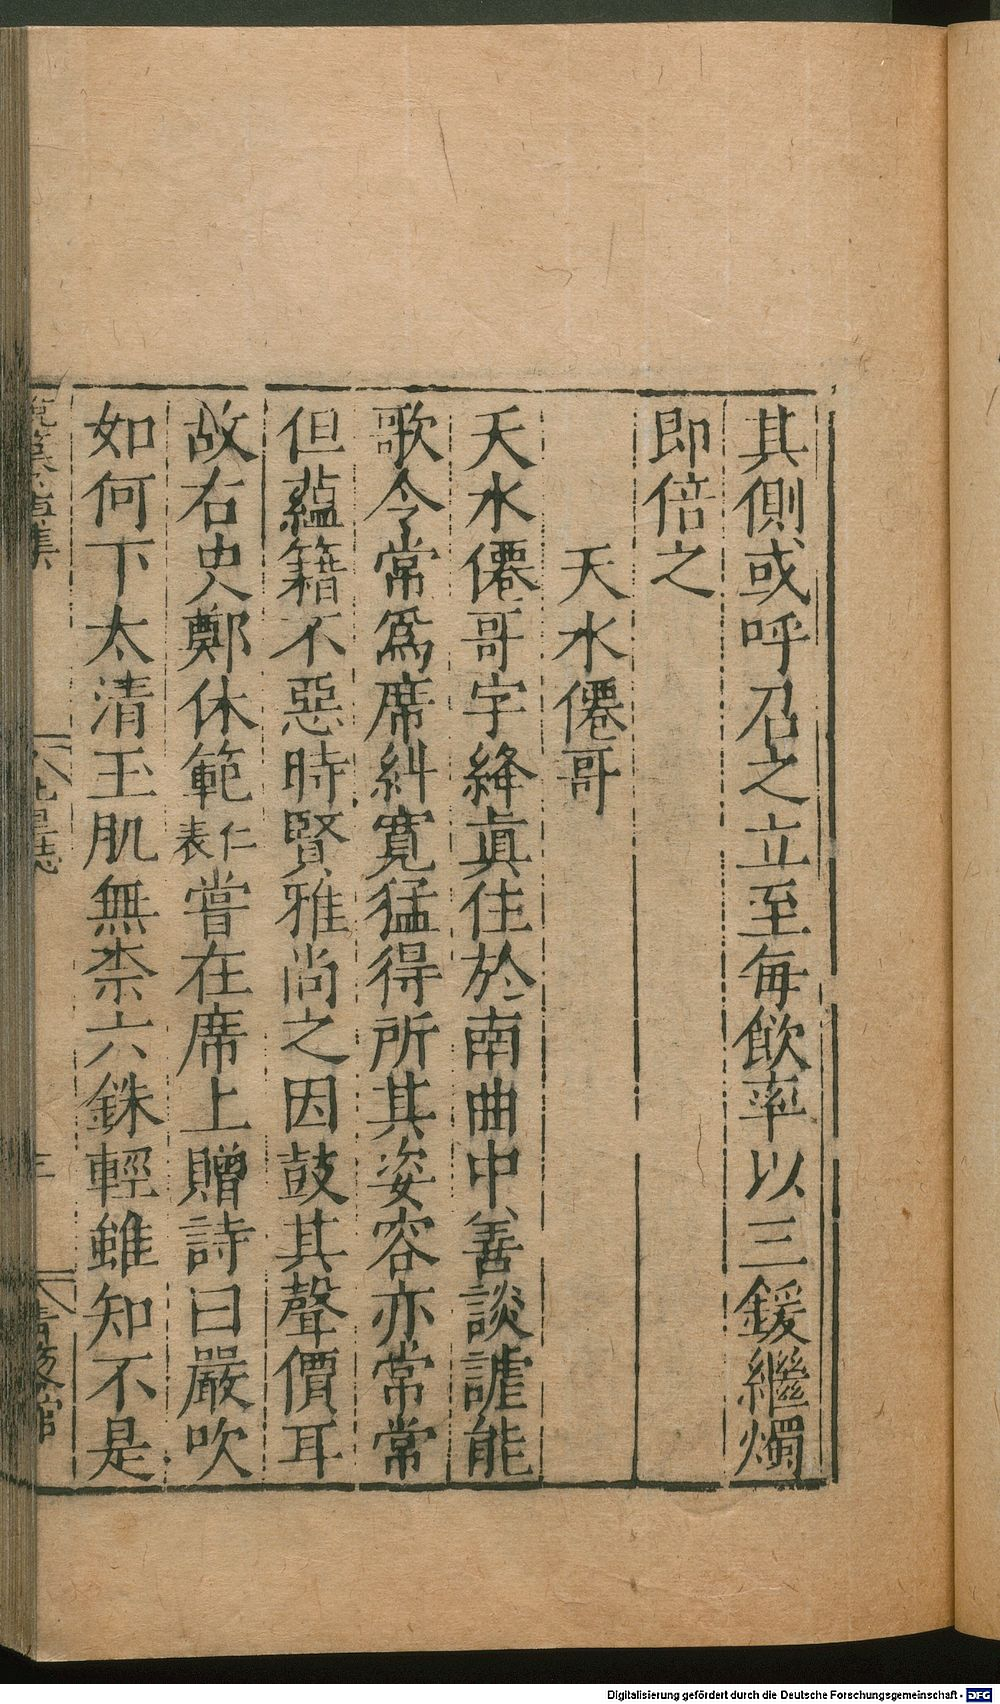 其側或呼召之立至每飲率以三鍰繼燭
即倍之
天水僊哥
天水僊哥字絳真住於南曲中善談謔能
歌令常爲席糾寬猛得所其姿容亦常常
但蘊籍不惡時賢雅尚之因鼓其聲價耳
故右史鄭休範仁表嘗在席上贈詩曰嚴吹
如何下太清玉肌無柰六銖輕雖知不是
北里志
三
Digitalisierung gefördert durch die Deutsche Forschungsgemeinschaft - DFG